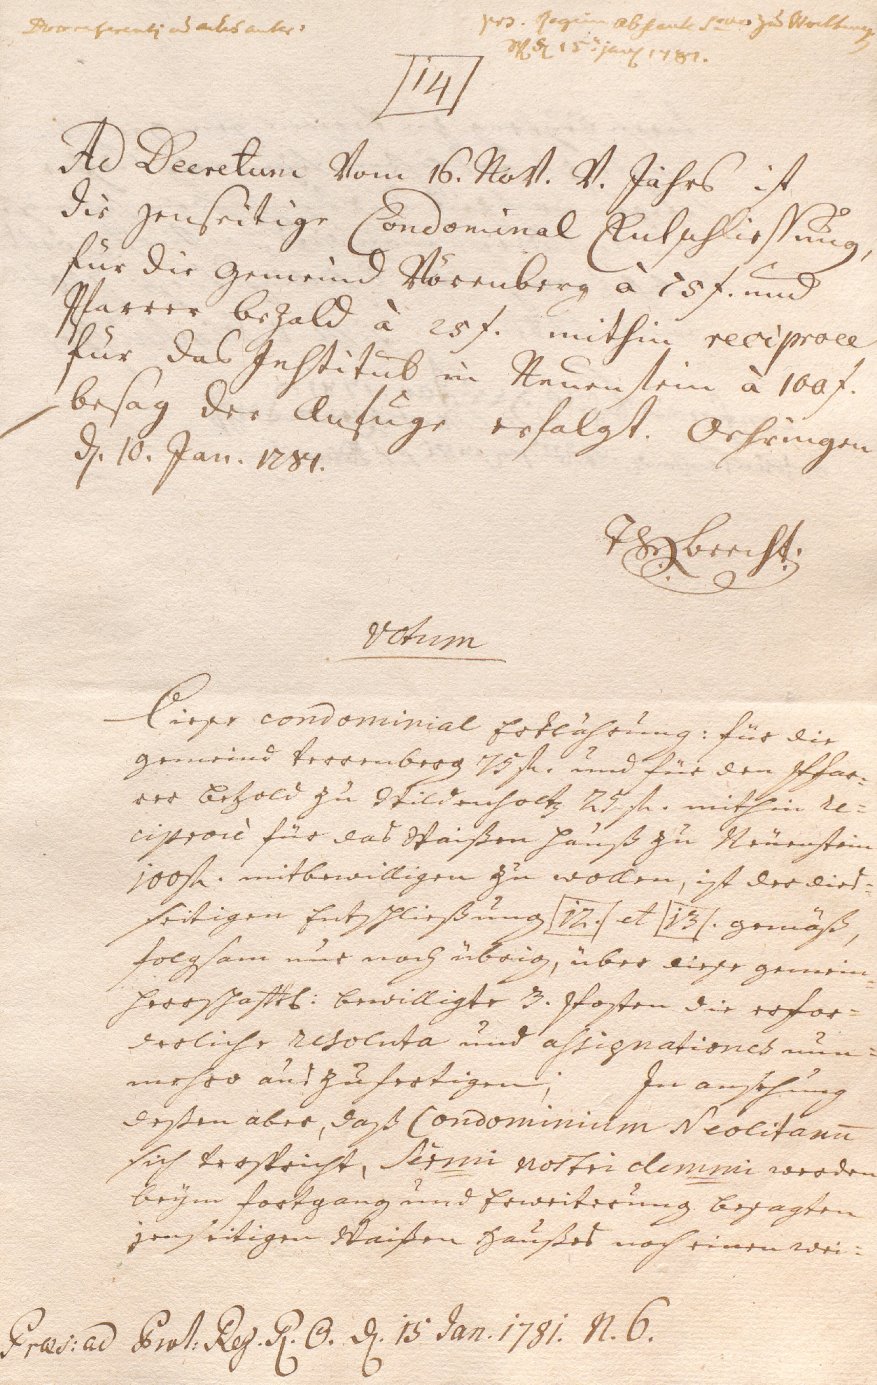 14
Ad Decretum Vom 16. Nov. v. Jahrs ist
die jenseitige Condominal Entschliessung,
für die Gemeind Vörenberg à 75 f. und
Pfarrer Bezold à 25 f. mithin reciproce
für das Institut in Neuenstein à 100 f.
besag der Anfuge erfolgt. Oehringen
d. 10. Jan. 1781.
Votum
Diese condominial Erklährung: für die
gemeind terrenberg 75 fl. und für den Pfar-
rer Bezold zu Wildenholtz 25 fl. mithin re-
ciprocè für das Waißen Hauß zu Neüenstein
100 fl. mitbewilligen zu wollen, ist der dies-
seitigen Entschließung 12. et 13. gemäß,
folgsam nur noch übrig, über diese gemein-
herrschafftl: bewilligte 3. Posten die erfor-
derliche resoluta und assignationes nun-
mehro auszufertigen; In ansehung
deßen aber, daß Condominium Neolitanum
sich verspricht, Sermi nostri clemmi werden
beym fortgang und Erweiterung besagten
jenseitigen Waißen Haußes noch einen wei-
Præs: ad Prot: Reg. R. O. d. 15 Jan. 1781. N. 6.